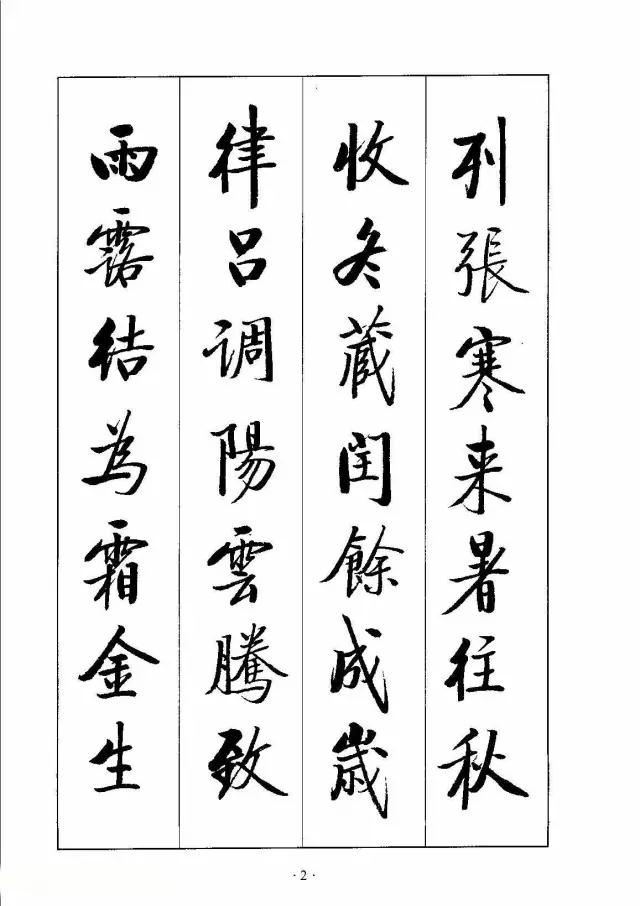 列張寒来暑往秋
收冬蔵閏餘成歳
律呂调陽雲騰致
雨露结為霜金生
· 2 ·